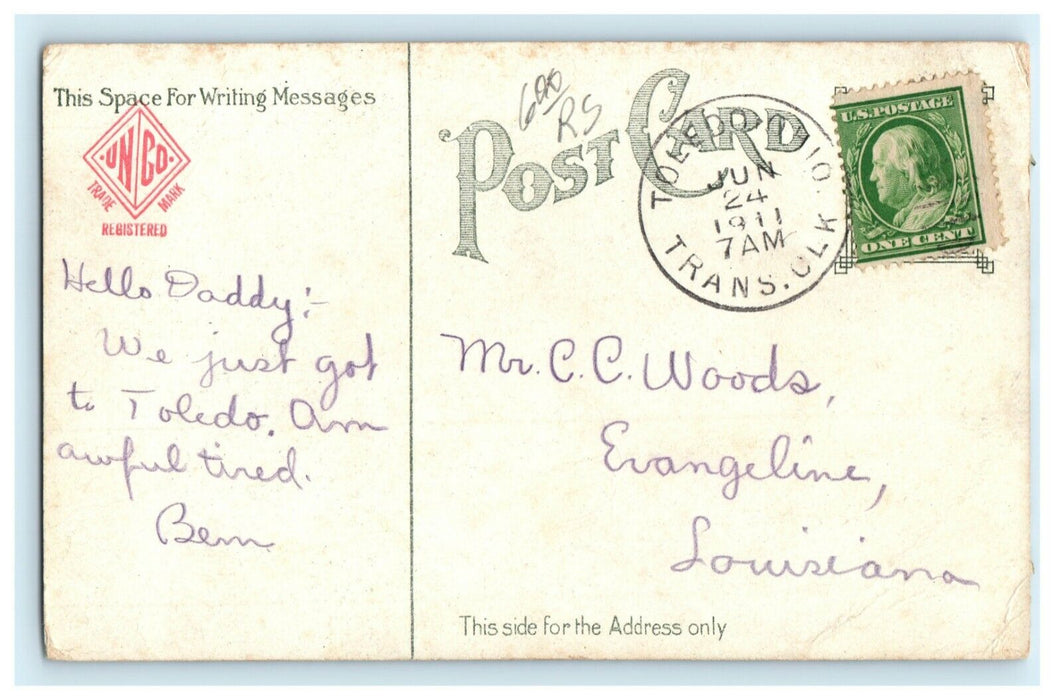 This Space For Writing Messages
·UN CO·
TRADE MARK
REGISTERED
Hello Daddy:-
We just got
to Toledo. Am
awful tired.
Bem
600
RS
POST CARD
TOLEDO, OHIO.
JUN
24
1911
7AM
TRANS. CLK
U.S. POSTAGE
ONE CENT
Mr. C. C. Woods,
Evangeline,
Louisiana
This side for the Address only